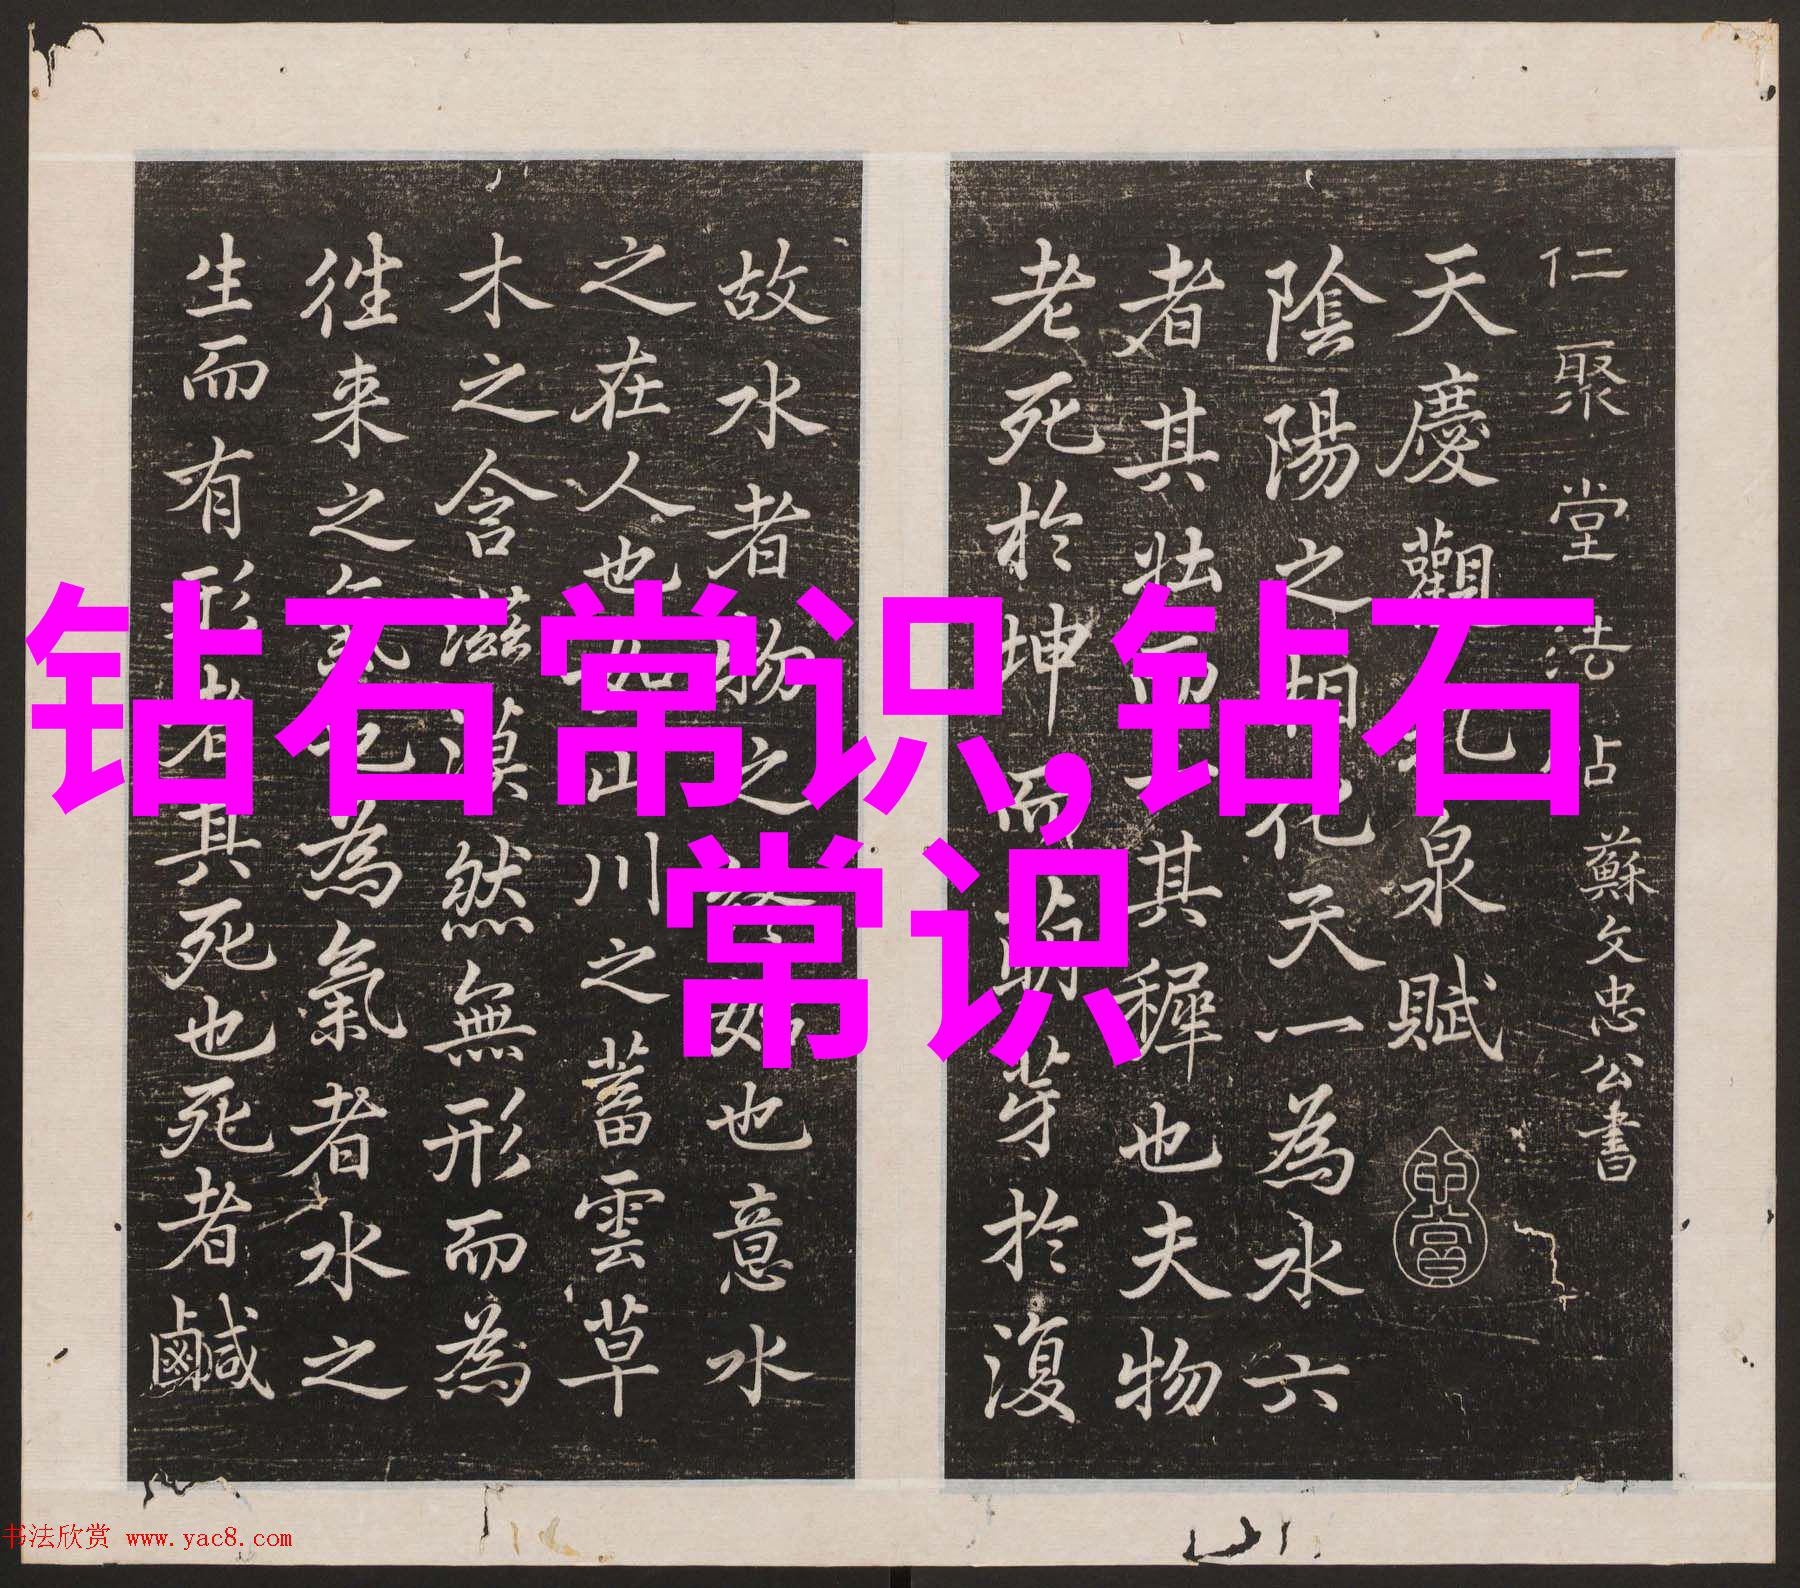 仁聚堂法帖 蘇文忠公書
天慶觀乳泉賦
陰陽之相化天一為水六
者其壯而一其穉也夫物
老死於坤而萌芽於復
故水者物之終始也意水
之在人也如山川之蓄雲草
木之含滋漠然無形而為
徃来之氣也為氣者水之
生而有形者其死也死者鹹
钻石常识,钻石
常识
书法欣赏 www.yac8.com